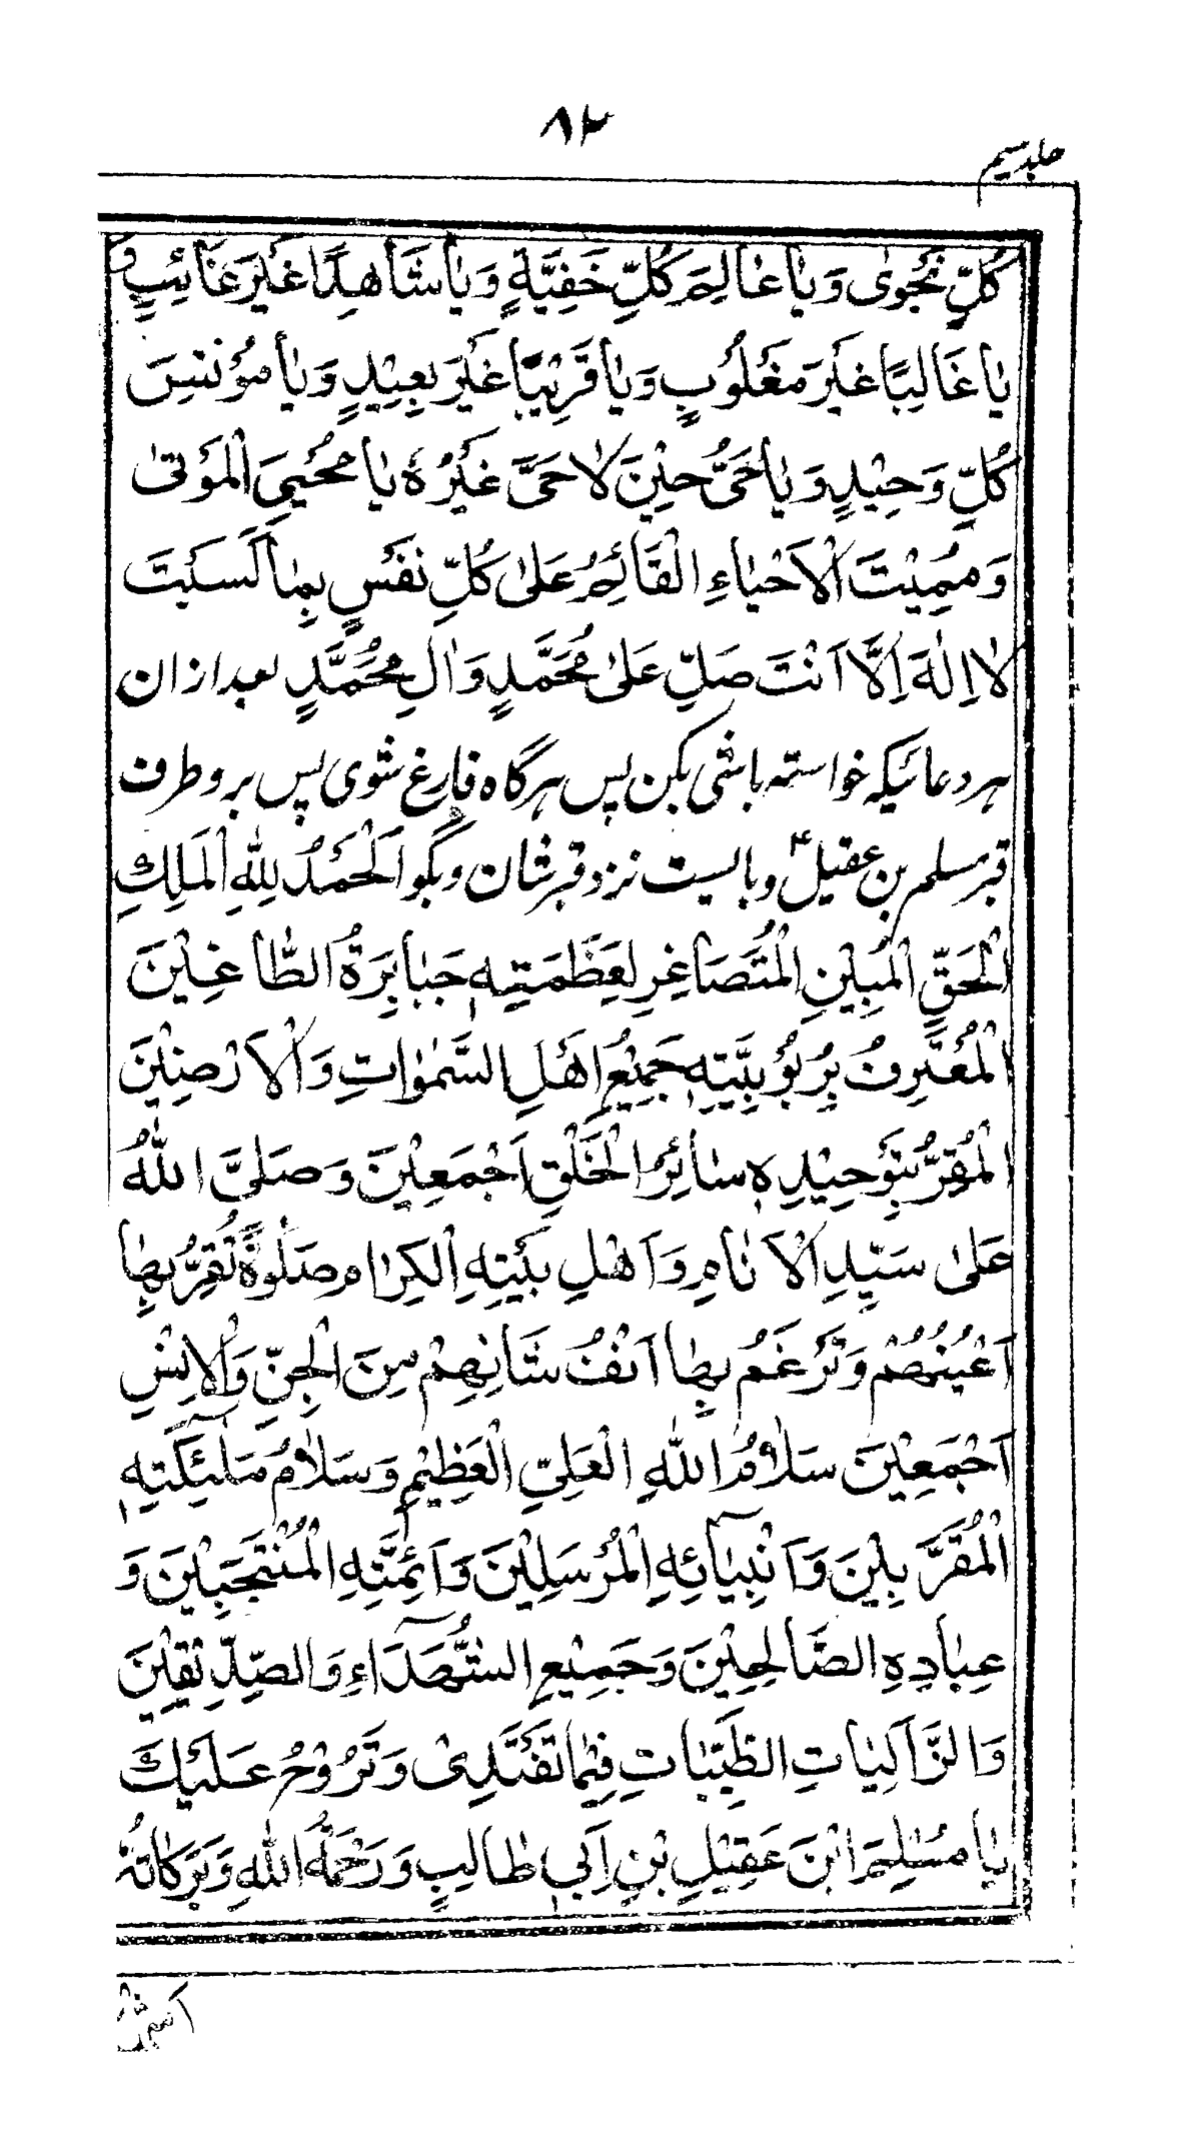 ۸۲
جلد سیم
كُلِّ نَجْوٰى وَيَا عَالِمَ كُلِّ خَفِيَّةٍ وَيَا شَاهِدًا غَيْرَ غَائِبٍ وَ
يَا غَالِبًا غَيْرَ مَغْلُوبٍ وَيَا قَرِيْبًا غَيْرَ بَعِيْدٍ وَيَا مُؤْنِسَ
كُلِّ وَحِيْدٍ وَيَا حَيُّ حِيْنَ لَا حَيَّ غَيْرُهُ يَا مُحْيِيَ الْمَوْتٰى
وَ مُمِيْتَ الْاَحْيَاءِ الْقَائِمُ عَلٰى كُلِّ نَفْسٍ بِمَا كَسَبَتْ
لَا اِلٰهَ اِلَّا اَنْتَ صَلِّ عَلٰى مُحَمَّدٍ وَ اٰلِ مُحَمَّدٍ بعد ازان
هر دعائیکه خواسته باشی بکن پس هرگاه فارغ شوی پس برو طرف
قبر مسلم بن عقیلؑ و بالیست نزد قبر شان و بگو اَلْحَمْدُ لِلّٰهِ الْمَلِكِ
الْحَقِّ الْمُبِيْنِ الْمُتَصَاغِرِ لِعَظَمَتِهٖ جَبَابِرَةُ الطَّاغِيْنَ
الْمُعْتَرِفُ بِرُبُوْبِيَّتِهٖ جَمِيْعُ اَهْلِ السَّمٰوَاتِ وَ الْاَرَضِيْنَ
الْمُقِرُّ بِتَوْحِيْدِهٖ سَائِرُ الْخَلْقِ اَجْمَعِيْنَ وَ صَلَّى اللّٰهُ
عَلٰى سَيِّدِ الْاَنَامِ وَ اَهْلِ بَيْتِهِ الْكِرَامِ صَلٰوةً تُقِرُّ بِهَا
اَعْيُنَهُمْ وَ تَرْغَمُ بِهَا اَنْفُ شَانِهِمْ مِنَ الْجِنِّ وَ الْاِنْسِ
اَجْمَعِيْنَ سَلَامُ اللّٰهِ الْعَلِيِّ الْعَظِيْمِ وَ سَلَامُ مَلٰٓئِكَتِهٖ
الْمُقَرَّبِيْنَ وَ اَنْبِيَآئِهِ الْمُرْسَلِيْنَ وَ اَئِمَّتِهِ الْمُنْتَجَبِيْنَ وَ
عِبَادِهِ الصَّالِحِيْنَ وَ جَمِيْعِ الشُّهَدَآءِ وَ الصِّدِّيْقِيْنَ
وَ الزَّاكِيَاتِ الطَّيِّبَاتِ فِيْمَا تَغْتَدِيْ وَ تَرُوْحُ عَلَيْكَ
يَا مُسْلِمَ ابْنَ عَقِيْلِ بْنِ اَبِيْ طَالِبٍ وَ رَحْمَةُ اللّٰهِ وَ بَرَكَاتُهُ